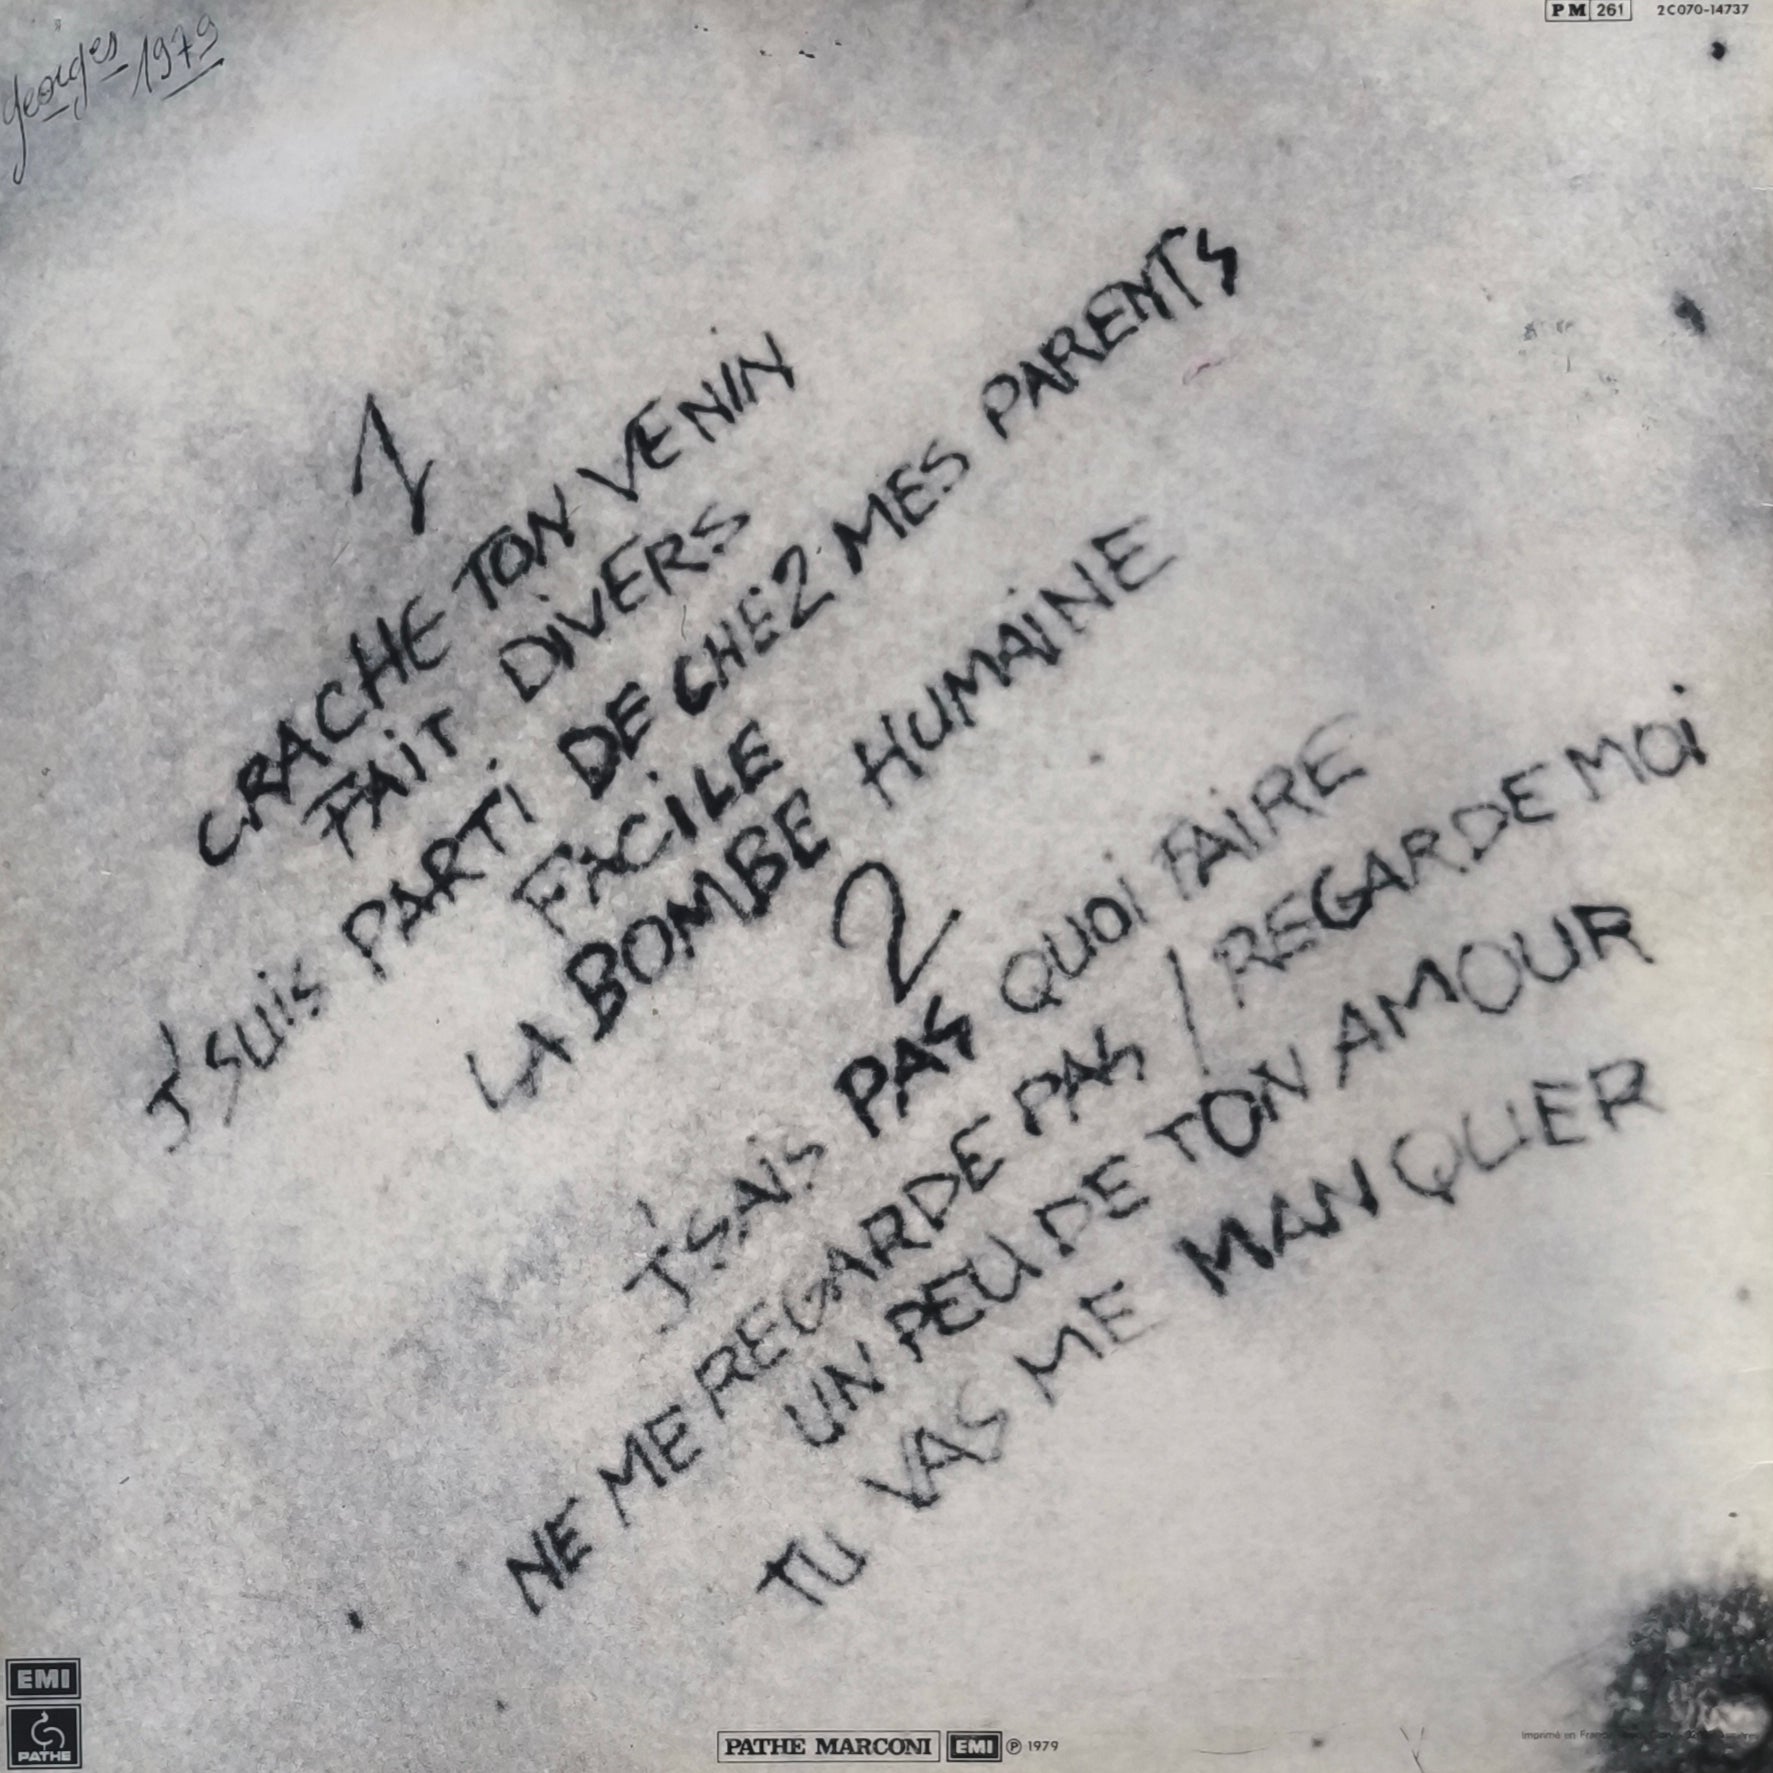 Georges 1979
PM 261 2C070-14737
1
CRACHE TON VENIN
FAIT DIVERS
J'SUIS PARTI DE CHEZ MES PARENTS
FACILE
LA BOMBE HUMAINE
2
J'SAIS PAS QUOI FAIRE
NE ME REGARDE PAS / REGARDE MOI
UN PEU DE TON AMOUR
TU VAS ME MANQUER
EMI
PATHE
PATHE MARCONI EMI ℗ 1979
Imprimé en